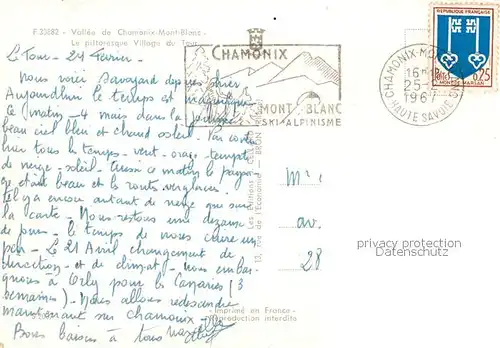 F.23882 - Vallée de Chamonix-Mont-Blanc
Le pittoresque Village du Tour
Le Tour - 24 Février -
Nous voici Savoyard depuis hier
Aujourdhui le temps est magnifique
Ce matin - 4 mais dans la journée
beau ciel bleu et chaud soleil. Par contre
hier tous les temps - vent - orage - tempête
de neige - soleil. Aussi ce matin le paysa-
ge était beau et la route verglacée.
tel ya encore autant de neige que sur
la carte - Nous restons une dizaine
de jours - le temps de nous cuire un
peu - Le 21 Avril changement de
direction - et de climat - nous embar-
quons à Orly pour les Canaries (3
semaines) - Nous allons redescendre
maintenant sur chamonix
Bons baisers à tous
CHAMONIX
MONT BLANC
SKI-ALPINISME
CHAMONIX-MONT
16H
25-2
1967
HAUTE SAVOIE
REPUBLIQUE FRANÇAISE
Postes 0,25
MONT-DE-MARSAN
12, rue de l'Economie - BRON
Imprimé en France -
Reproduction interdite
av.
28
privacy protection
Datenschutz